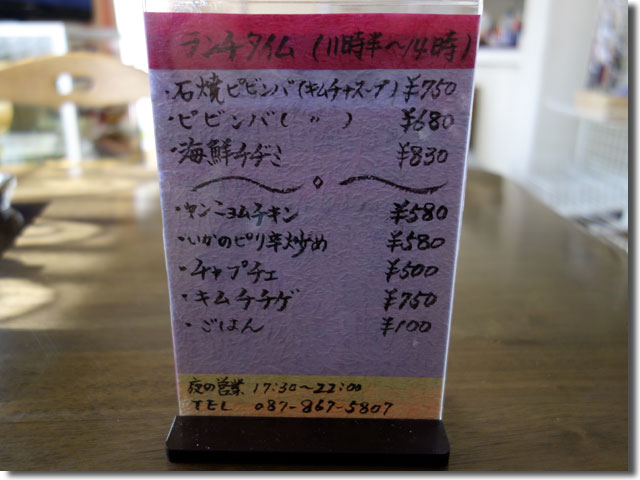 ランチタイム (11時半〜14時)
・石焼ピビンバ(キムチ+スープ) ¥750
・ピビンバ( 〃 ) ¥680
・海鮮チヂミ ¥830
・ヤンニョムチキン ¥580
・いかのピリ辛炒め ¥580
・チャプチェ ¥500
・キムチチゲ ¥750
・ごはん ¥100
夜の営業 17:30〜22:00
TEL 087-867-5807